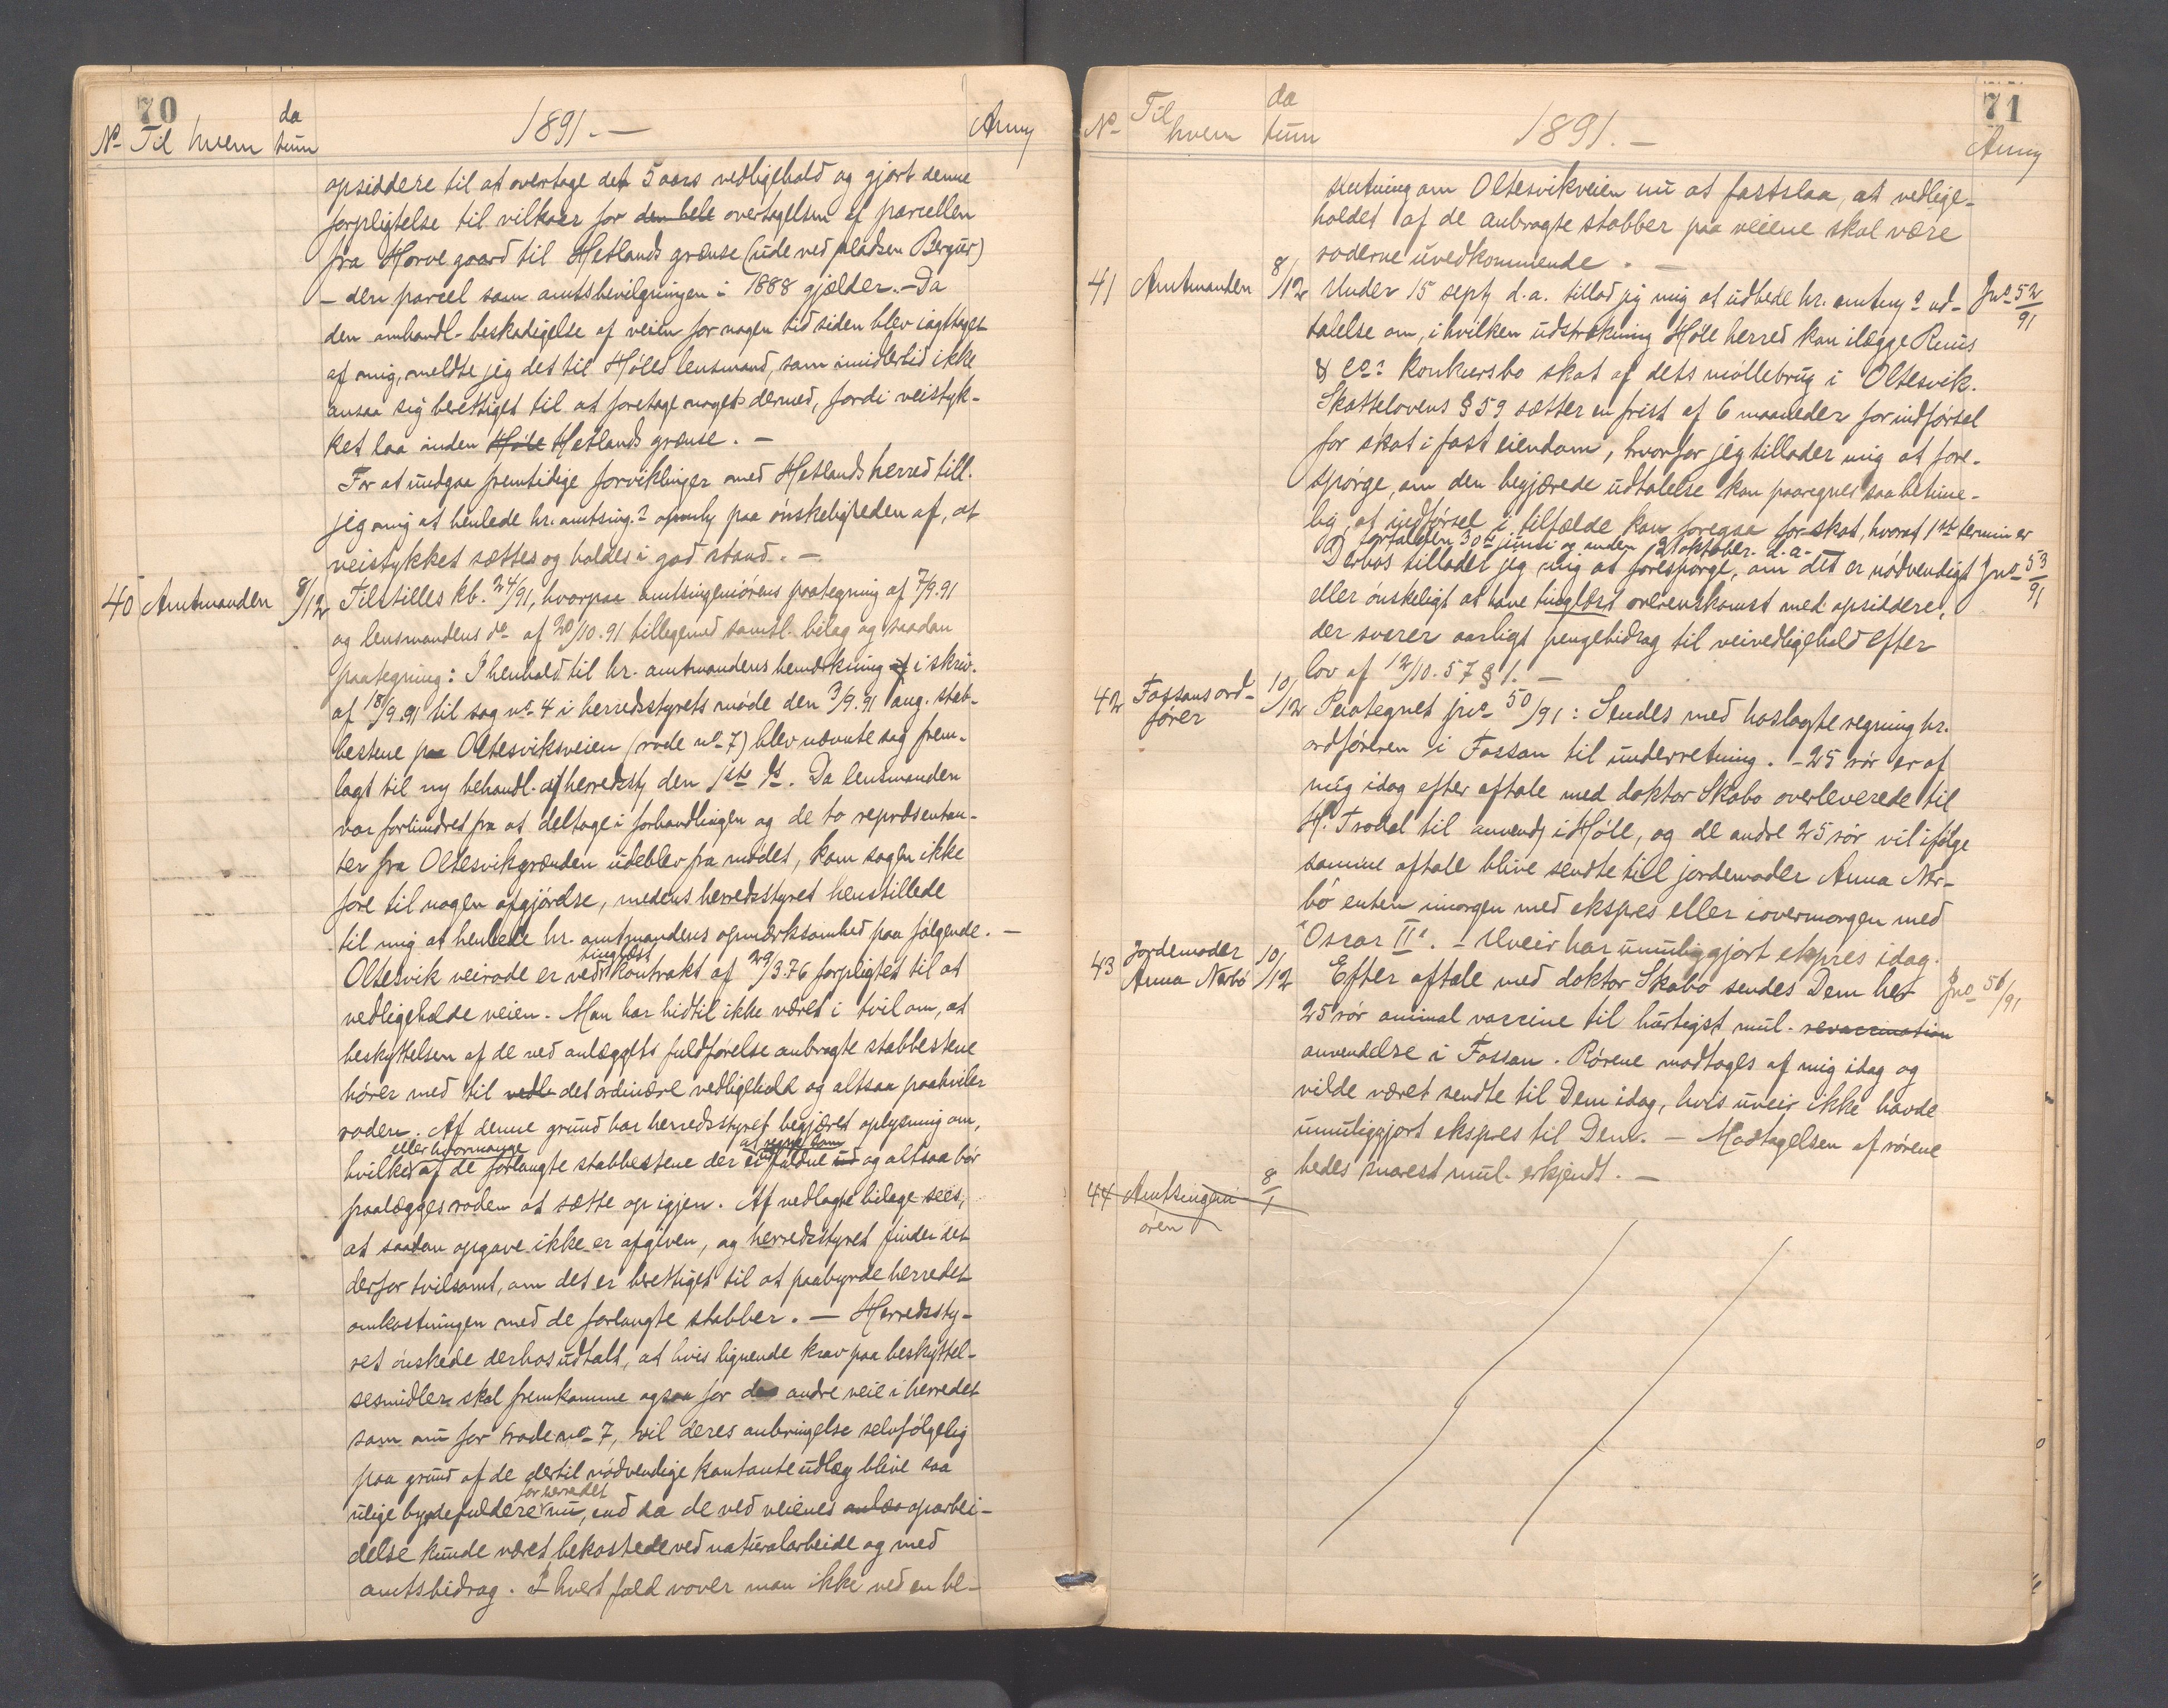 70
No Til hvem datum 1891. — Anm
opsiddere til at overtage det 5 aars vedligehold og gjort denne
forpligtelse til vilkaar for den hele overtagelsen af parcellen
fra Horve gaard til Hetlands grænse (ude ved pladsen Bergus)
— den parcel som amtsbevilgningen i 1888 gjælder. — Da
den omhandl. beskadigelse af veien for nogen tid siden blev iagttaget
af mig, meldte jeg det til Höles lensmand, som imidlertid ikke
ansaa sig berettiget til at foretage noget dermed, fordi veistyk-
ket laa inden Höle Hetlands grænse. —
For at undgaa fremtidige forviklinger med Hetlands herred till.
jeg mig at henlede hr. amtsing.s opmh paa ønskeligheden af, at
veistykket sættes og holdes i god stand. —
40 Amtmanden 8/12 Tilstilles kb. 24/91, hvorpaa amtsingeniörens paategning af 7/9.91
og lensmandens do af 20/10.91 tillegemed samtl. bilag og saadan
paategning: I henhold til hr. amtmandens bemærkning af i skriv.
af 18/9.91 til sag no 4 i herredsstyrets möde den 3/9.91 ang. stab-
bestene paa Oltesviksveien (rode no 7) blev nævnte sag frem-
lagt til ny behandl. af herredsst den 1ste ds. Da lensmanden
var forhindret fra at deltage i forhandlingen og de to repræsentan-
ter fra Oltesvikgrænden udeblev fra mödet, kom sagen ikke
fore til nogen afgjördse, medens herredsstyret henstillede
til mig at henlede hr. amtmandens opmærksomhed paa fölgende. —
tinglæst
Oltesvik veirode er ved kontrakt af 29/3.76 forpligtet til at
vedligeholde veien. Man har hidtil ikke været i tvil om, at
beskyttelsen af de ved anlæggets fuldførelse anbragte stabbestene
hörer med til vedl det ordinære vedligehold og altsaa paahviler
roden. Af denne grund har herredsstyret begjæret oplysning om,
eller hvormange at regne som
hvilke af de forlangte stabbestene der er faldne ud og altsaa bör
paalægges roden at sætte op igjen. Af vedlagte bilage sees,
at saadan opgave ikke er afgiven, og herredsstyret finder det
derfor tvilsomt, om det er berettiget til at paabyrde herredet
omkostningen med de forlangte stabber. — Herredssty-
ret önskede derhos udtalt, at hvis lignende krav paa beskyttel-
sesmidler skal fremkomme ogsaa for de andre veie i herredet
som nu for rode no 7, vil deres anbringelse selvfölgelig
paa grund af de dertil nödvendige kontante udlæg blive saa
for herredet
ulige byrdefuldere nu, end da de ved veienes anlæs oparbei-
delse kunde været bekostede ved naturalarbeide og med
amtsbidrag. I hvert fald vover man ikke ved en be-
71
No Til hvem datum 1891. — Anm
slutning om Oltesvikveien nu at fastslaa, at vedlige-
holdet af de anbragte stabber paa veiene skal være
roderne uvedkommende. —
41 Amtmanden 8/12 Under 15 septr d.a. tillod jeg mig at udbede hr. amtm.s ud- Jno 52/91
talelse om, i hvilken udstrækning Höle herred kan ilægge Ruus
& Co: konkursbo skat af dets möllebrug i Oltesvik.
Skattelovens § 59 sætter en frist af 6 maaneder for indförsel
for skat i fast eiendom, hvorfor jeg tillader mig at fore-
spörge, om den begjærede udtalelse kan paaregnes saa betime-
lig, at indförsel i tilfælde kan foregaa for skat, hvoraf 1ste termin er
forfalden 30te juni og anden 12 oktober d.a.
Derhos tillader jeg mig at forespörge, om det er nödvendigt Jno 53/91
eller önskeligt at have tinglæst overenskomst med opsiddere,
der svarer aarligt pengebidrag til veivedligehold efter
lov af 12/10.57 § 1. —
42 Fossans ord- 10/12 Paategnet jno 50/91: Sendes med hoslagte regning hr.
förer
ordföreren i Fossan til underretning. — 25 rör er af
mig idag efter aftale med doktor Skabo overleverede til
H. Trodal til anvend. i Höle, og de andre 25 rör vil ifölge
samme aftale blive sendte til jordemoder Anna Nær-
bö enten imorgen med ekspres eller iovermorgen med
"Oscar II". — Uveir har umuliggjort ekspres idag.
43 Jordemoder 10/12
Anna Nærbö
Efter aftale med doktor Skabo sendes Dem her Jno 56/91
25 rör animal vaccine til hurtigst mul. revaccination
anvendelse i Fossan. Rörene modtoges af mig idag og
vilde været sendte til Dem idag, hvis uveir ikke havde
umuliggjort ekspres til Dem. — Modtagelsen af rörene
bedes snarest mul. erkjendt. —
44 Amtsingeni 8/1
ören